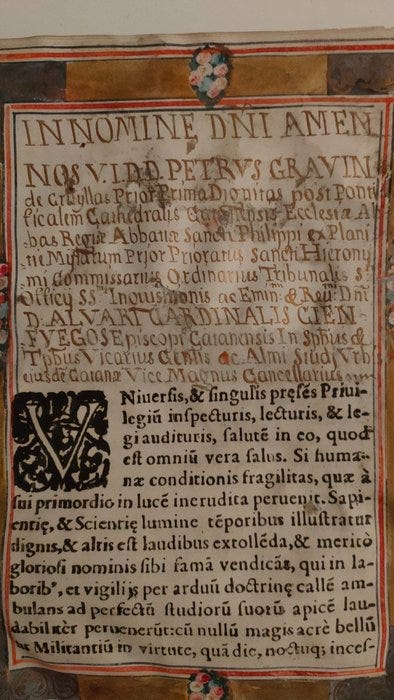 IN NOMINE DN̄I AMEN
NOS V.I.D.D. PETRVS GRAVIN
de Cruyllas Prior Prima Dignitas post Ponti
ficalem Cathedralis Catanensis Ecclesiæ A
bas Regiæ Abbatiæ Sancti Philippi de Plani
tie Prior Prioratus Sancti Hierony
mi Commissarius Ordinarius Tribunalis S.
Officij SS. Inquisitionis ac Emin. & Reu. Dn̄i
D. ALVARI CARDINALIS CIEN-
FVEGOS Episcopi Catanensis In Sp̄bus &
Tp̄bus Vicarius Gen̄lis ac Almi Studij Vrb
eiusdē Catanæ Vice Magnus Cancellarius
VNiuersis, & singulis pręsēs Priui-
legiū inspecturis, lecturis, & le-
gi audituris, salutē in eo, quod
est omniū vera salus. Si huma-
næ conditionis fragilitas, quæ à
sui primordio in lucē inerudita peruenit. Sapi-
entię, & Scientię lumine tēporibus illustratur
dignis, & altis est laudibus extollēda, & meritò
gloriosi nominis sibi famā vendicās, qui in la-
borib', et vigilijs per arduū doctrinę callē am-
bulans ad perfectū studiorū suorū apicē lau-
dabiliter peruenerūt: cū nullū magis acrè bellū
sit Militantiū in virtute, quā die, noctuq; inces-